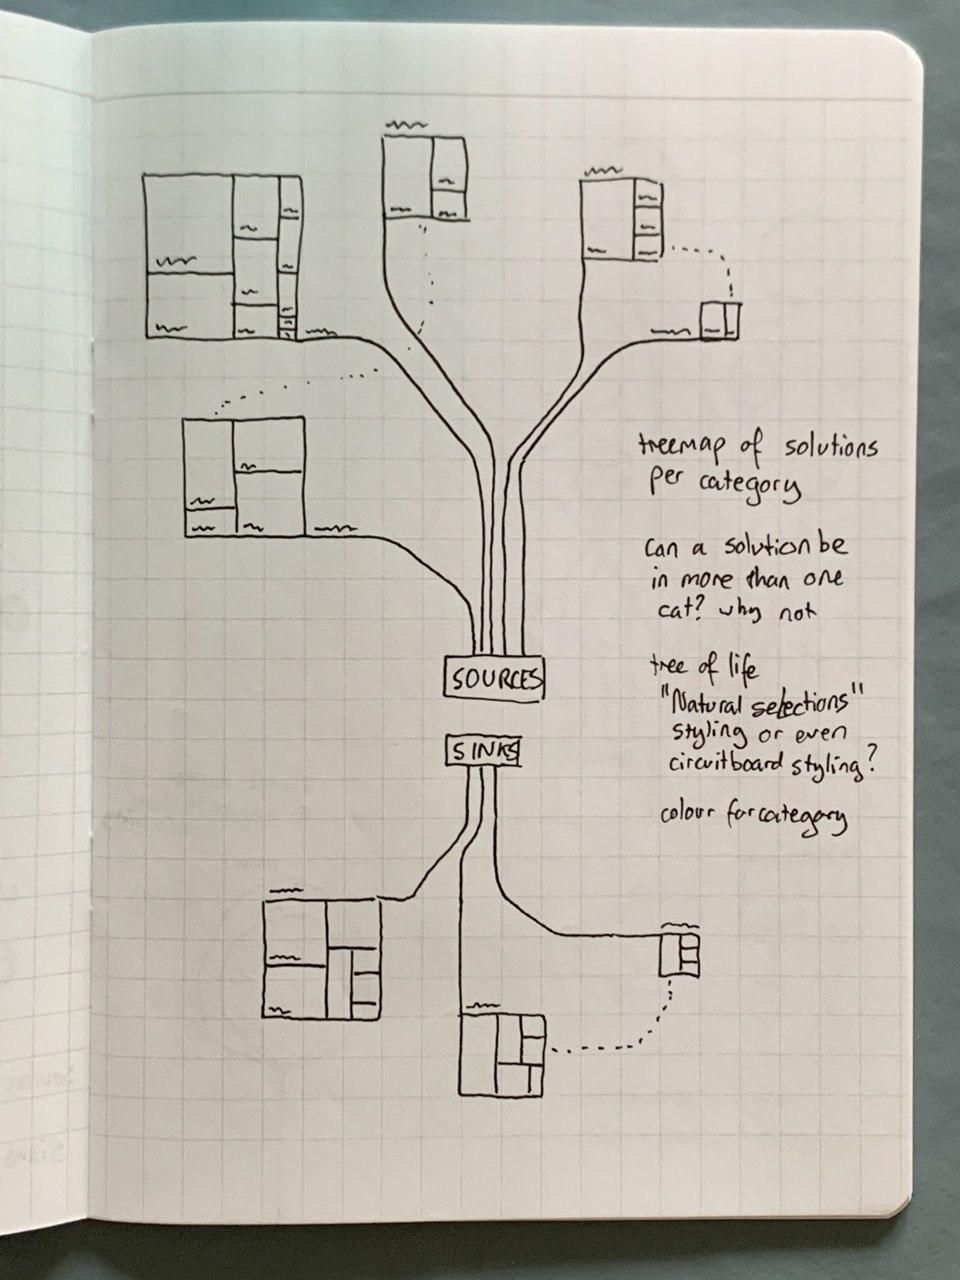 treemap of solutions
per category
can a solution be
in more than one
cat? why not
SOURCES
tree of life
"Natural selections"
styling or even
circuitboard styling?
SINKS
colour for category